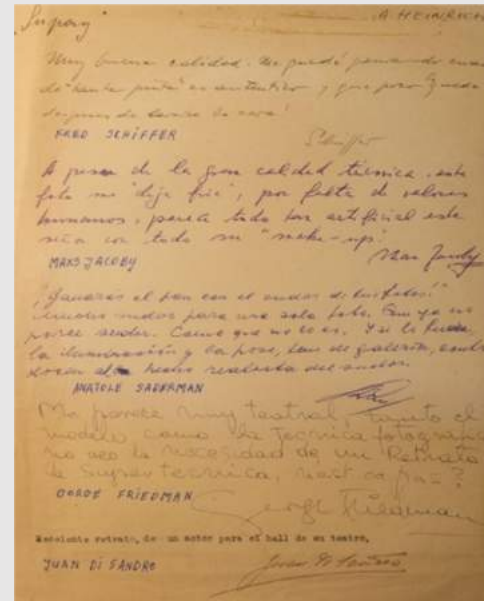 "Supay" A. HEINRICH
Muy buena calidad. Me quedé pensando
de "tanta pinta" es auténtico y que poco queda
después de lavarse la cara!
FRED SCHIFFER Schiffer
A pesar de la gran calidad técnica, esta
foto me "dejó frío", por falta de valores
humanos, parece todo tan artificial este
señor con todo su "make-up".
MAKS JACOBY
"Ganarás el pan con el sudor de tu frente!"
mucho sudor para una sola foto. Que ya no
parece sudor. Como que no lo es. Y si lo fuera,
la iluminación y la pose, tan de galería,
el tema realista del sudor.
ANATOLE SADERMAN
Me parece muy teatral, tanto el
modelo como la tecnica fotografica
no veo la necesidad de un Retrato
de Supertecnica, n'est ce pas?
GORGE FRIEDMAN
George Friedman
Excelente retrato, de un actor para el hall de su teatro.
JUAN DI SANDRO Juan Di Sandro